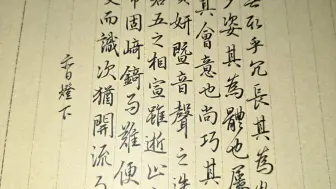 乎冗長其為
多姿其為體也屢
其會意也尚巧其
妍暨音聲之迭
五之相宣雖逝止
固崎錡而難便
而識次猶開流
燈下